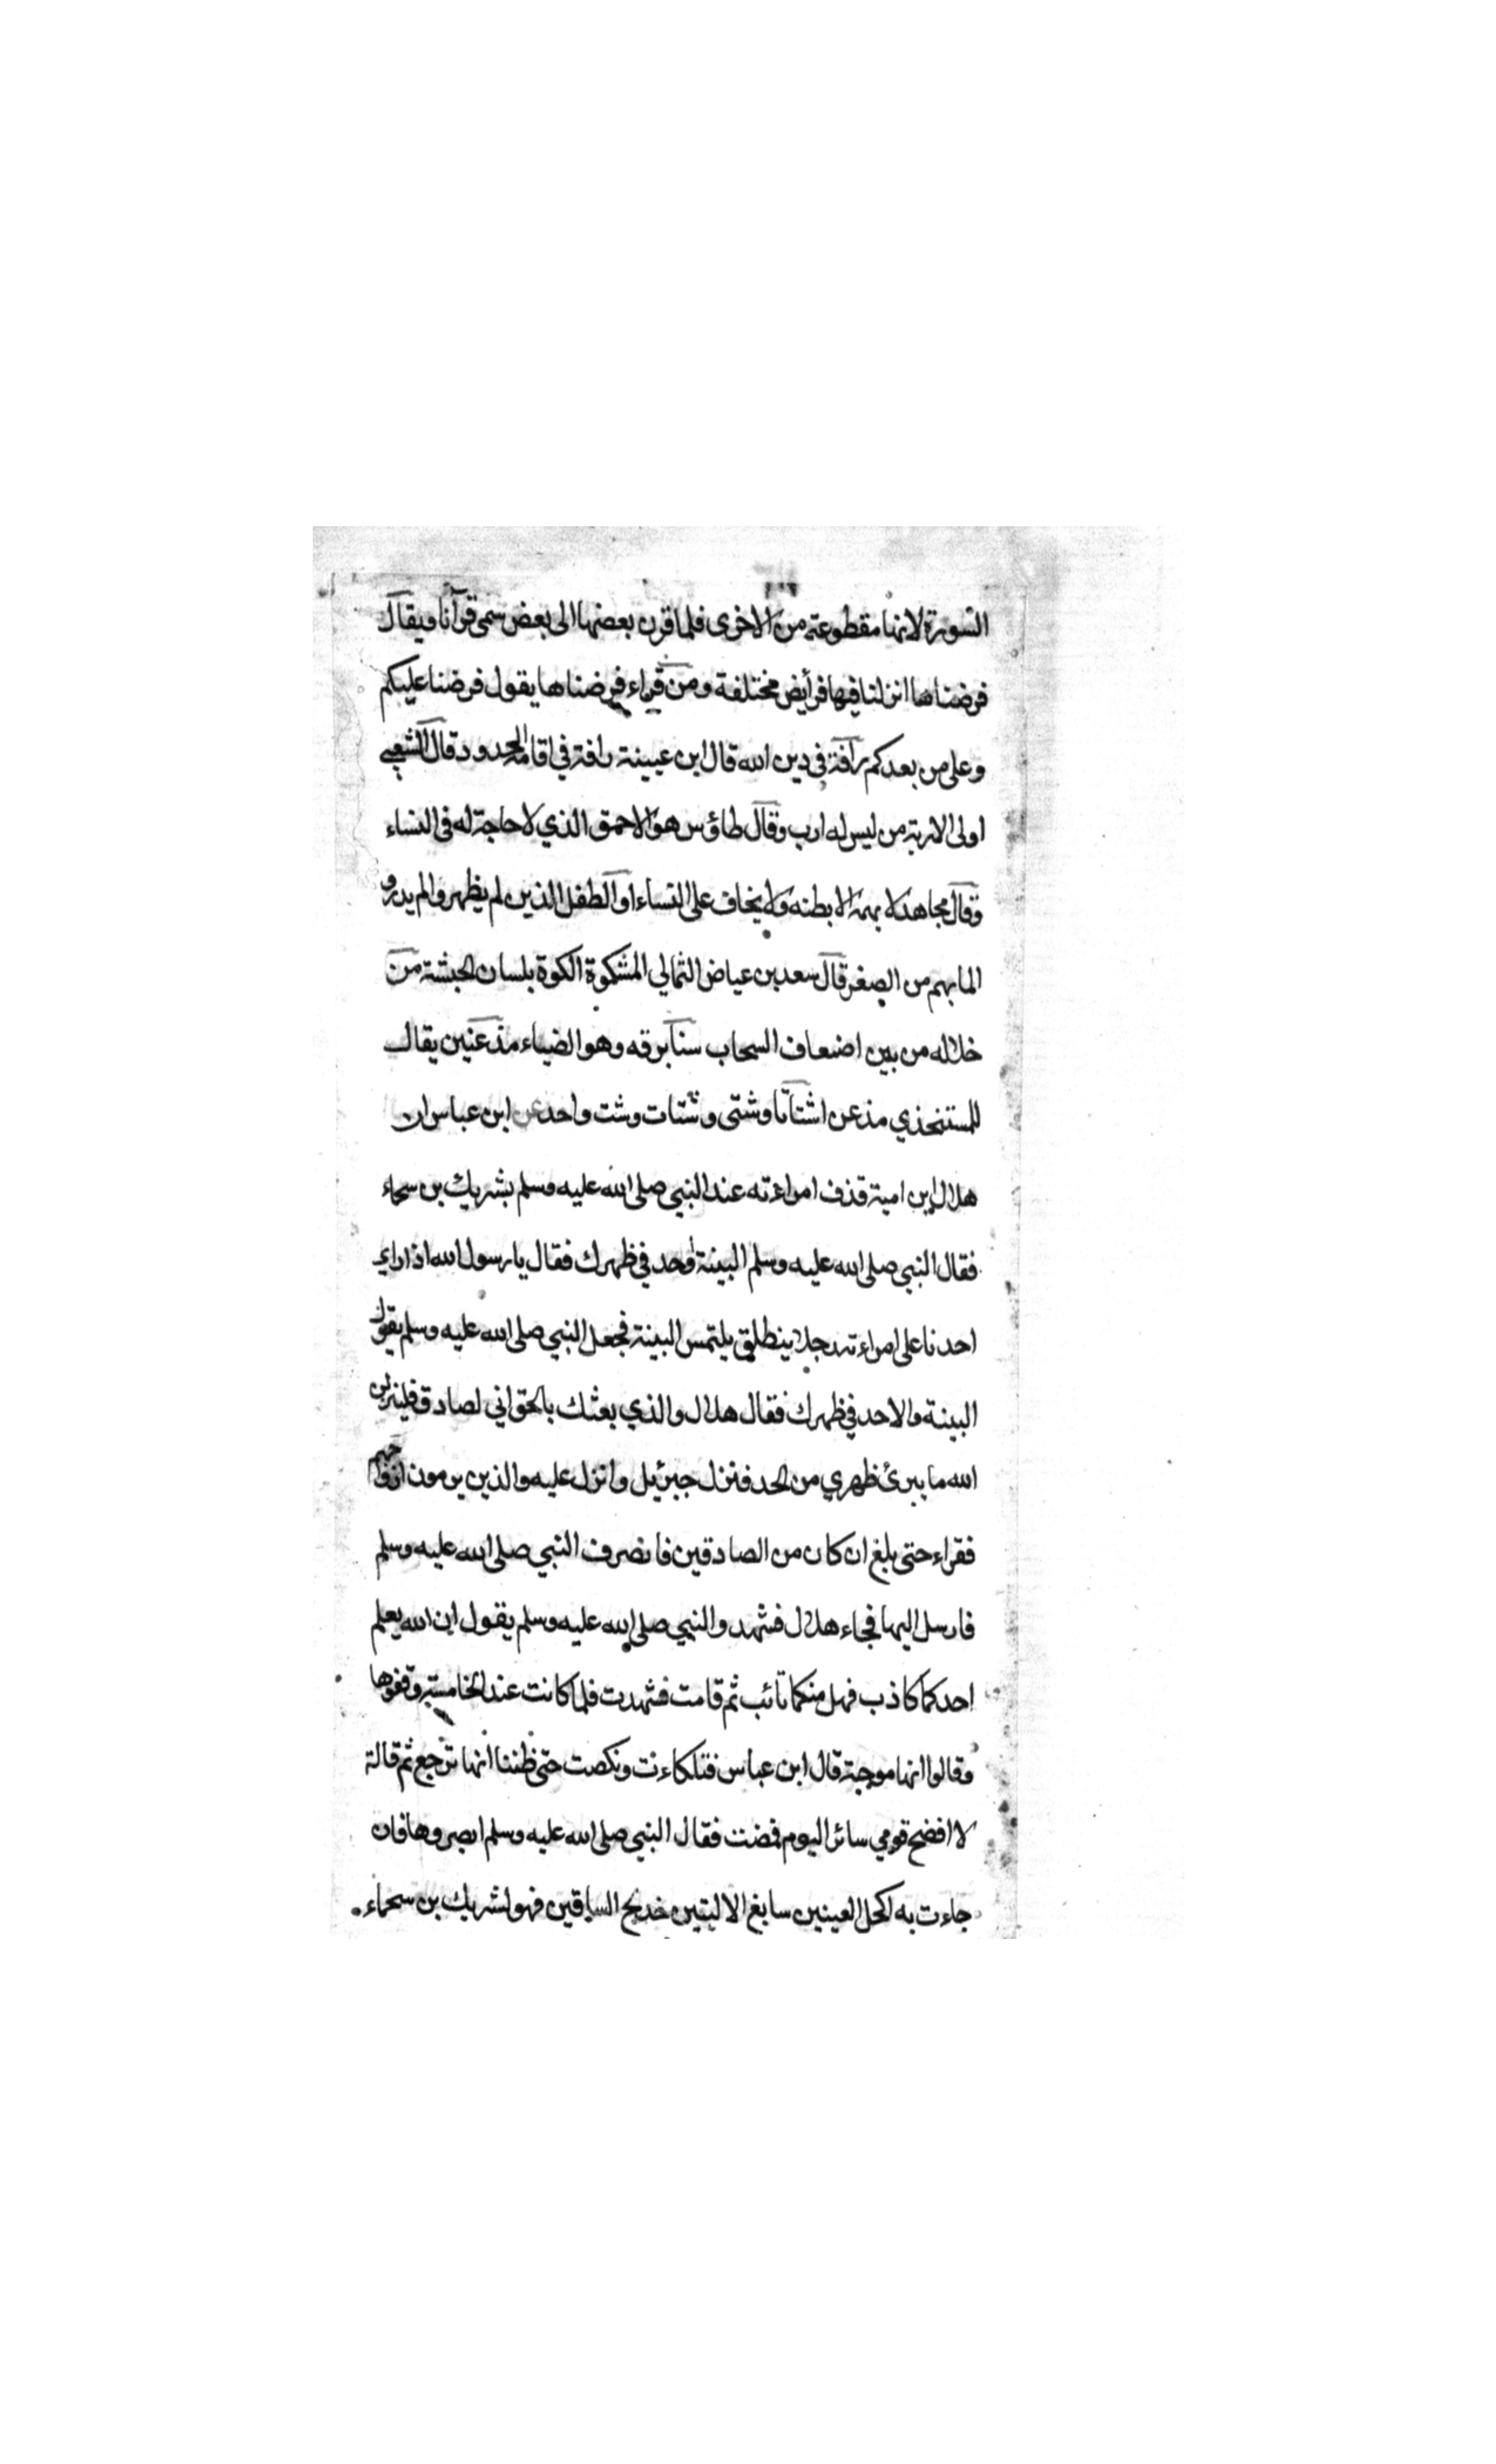 السورة لانها مقطوعة من الاخرى فلما قرن بعضها الى بعض سمى قرآنا ويقال
فرضناها انزلنا فيها فرأيض مختلفة ومن قراء فرضناها يقول فرضنا عليكم
وعلى من بعدكم رافة في دين الله قال ابن عيينة رافة في اقامة الحدود قال الشعبي
اولى الاربة من ليس له ارب وقال طاؤس هو الاحمق الذي لا حاجة له في النساء
وقال مجاهد لا يهمه الا بطنه ولا يخاف على النساء او الطفل الذين لم يظهروا لم يدرو
الما بهم من الصغر قال سعد بن عياض الثمالي المشكوة الكوة بلسان الحبشة من
خلاله من بين اضعاف السحاب سنا برقه وهو الضياء مذعنين يقال
للمستخذي مذعن اشتاتا وشتى وشتات وشت واحد عن ابن عباس ان
هلال ابن امية قذف امراءته عند النبي صلى الله عليه وسلم بشريك بن سحماء
فقال النبي صلى الله عليه وسلم البينة اوحد في ظهرك فقال يا رسول الله اذا راي
احدنا على امراءته رجلا ينطلق يلتمس البينة فجعل النبي صلى الله عليه وسلم يقول
البينة والا حد في ظهرك فقال هلال والذي بعثك بالحق اني لصادق فلينزلن
الله ما يبرئ ظهري من الحد فنزل جبرئيل وانزل عليه والذين يرمون ازواجهم
فقراء حتى بلغ ان كان من الصادقين فانصرف النبي صلى الله عليه وسلم
فارسل اليها فجاء هلال فشهد والنبي صلى الله عليه وسلم يقول ان الله يعلم
احدكما كاذب فهل منكما تائب ثم قامت فشهدت فلما كانت عند الخامسة وقفوها
وقالوا انها موجبة قال ابن عباس فتلكاءت ونكصت حتى ظننا انها ترجع ثم قالة
لا افضح قومي سائر اليوم فمضت فقال النبي صلى الله عليه وسلم ابصروها فان
جاءت به اكحل العينين سابغ الاليتين خدلج الساقين فهو لشريك بن سحماء